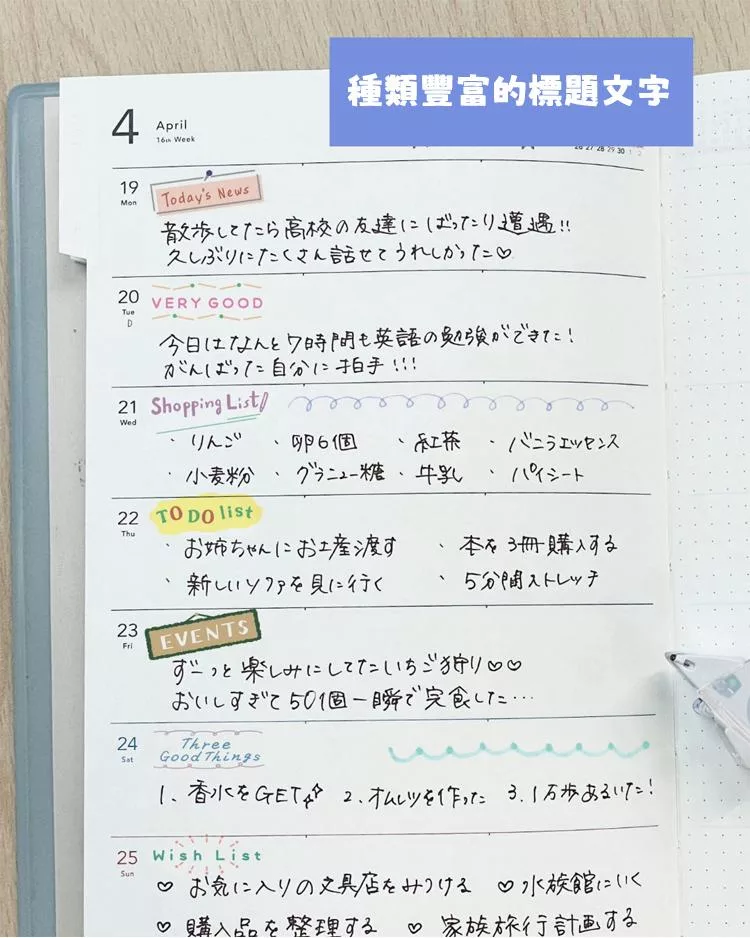 種類豐富的標題文字
4 April
16th Week
26 27 28 29 30 1 2
19 Mon Today's News
散歩してたら高校の友達にばったり遭遇!!
久しぶりにたくさん話せてうれしかった♡
20 Tue VERY GOOD
D
今日はなんと7時間も英語の勉強ができた!
がんばった自分に拍手!!!
21 Wed Shopping List
・りんご ・卵6個 ・紅茶 ・バニラエッセンス
・小麦粉 ・グラニュー糖 ・牛乳 ・パイシート
22 Thu TO DO list
・お姉ちゃんにお土産渡す ・本を3冊購入する
・新しいソファを見に行く ・5分間ストレッチ
23 Fri EVENTS
ずーっと楽しみにしてたいちご狩り♡♡
おいしすぎて50個一瞬で完食した…
24 Sat Three Good Things
1、香水をGET 2、オムレツを作った 3.1万歩あるいた!
25 Sun Wish List
♡お気に入りの文具店をみつける ♡水族館にいく
♡購入品を整理する ♡家族旅行計画する